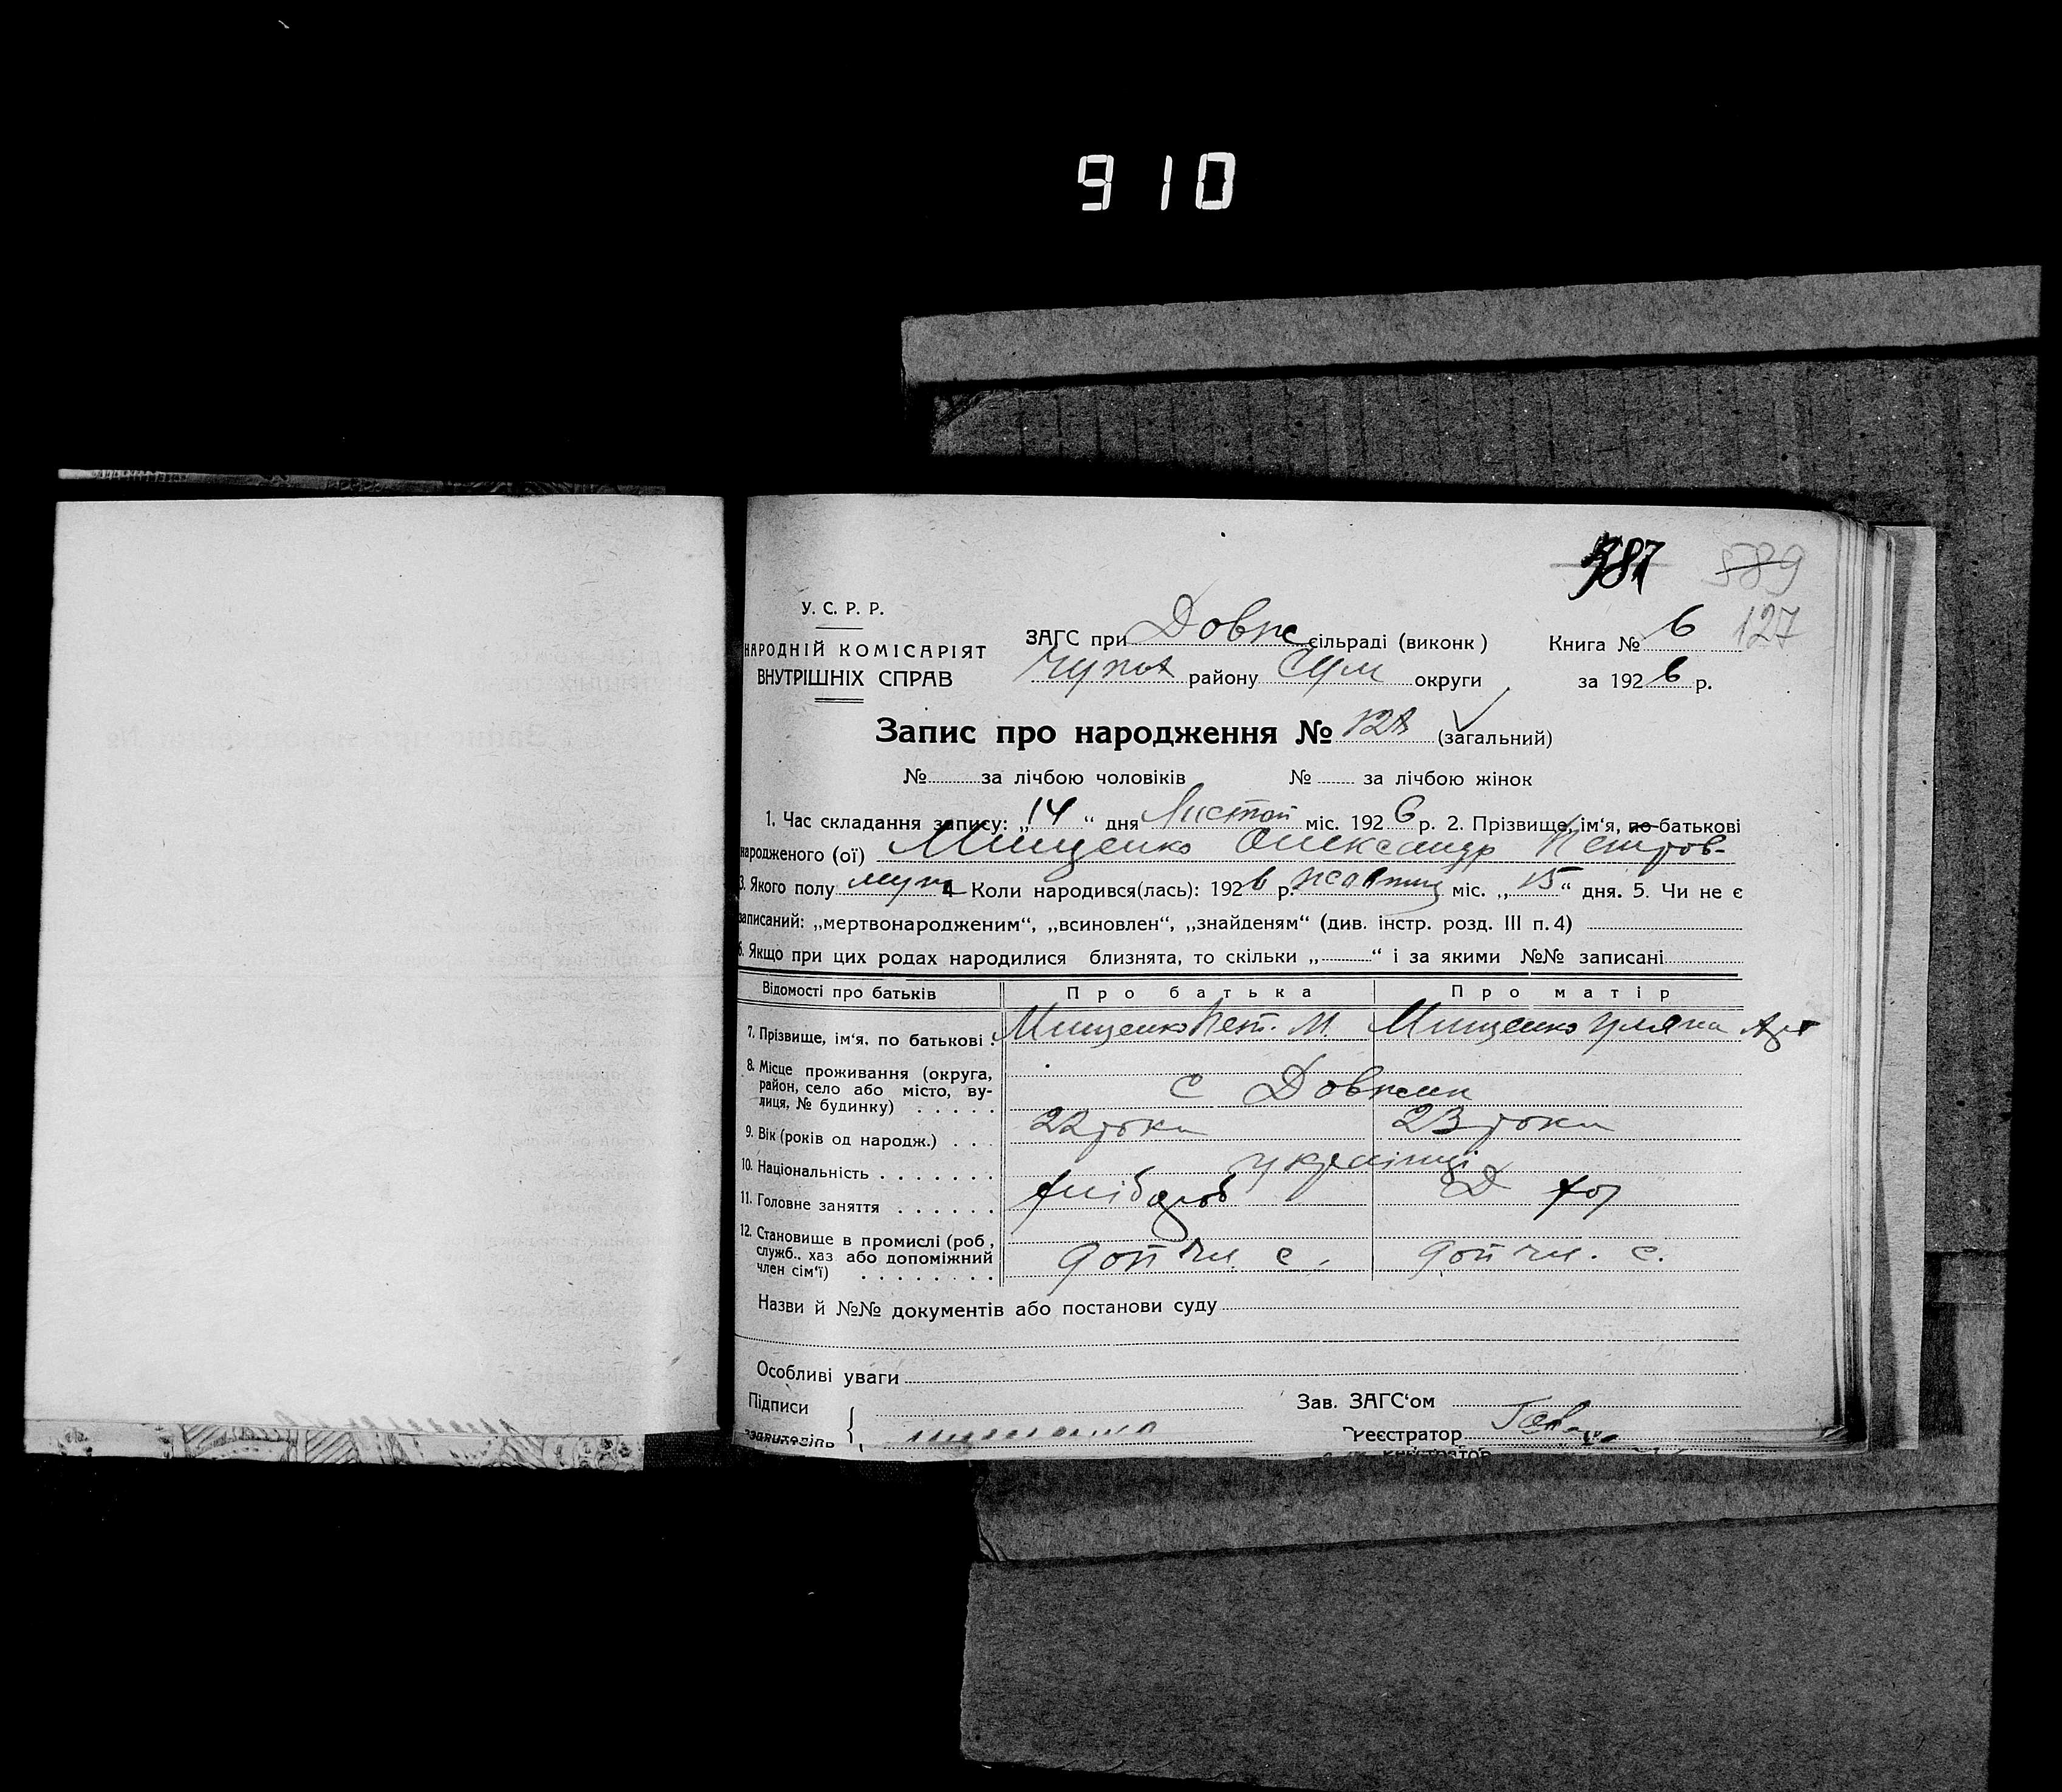 910
387 589
У. С. Р. Р.
ЗАГС при Довж сільраді (виконк) Книга № 6 127
НАРОДНІЙ КОМІСАРІЯТ
ВНУТРІШНІХ СПРАВ
району Сум округи за 1926 р.
Запис про народження № 128 (загальний)
№ за лічбою чоловіків № за лічбою жінок
1. Час складання запису: „14“ дня Листоп міс. 1926 р. 2. Прізвище, ім'я, по-батькові
народженого (ої) Мищенко Олександр Петров-
3. Якого полу муж 4. Коли народився(лась): 1926 р. жовтня міс. „15“ дня. 5. Чи не є
записаний: „мертвонародженим“, „всиновлен“, „знайденям“ (див. інстр. розд. III п. 4)
6. Якщо при цих родах народилися близнята, то скільки „ “ і за якими №№ записані
Відомості про батьків Про батька Про матір
7. Прізвище, ім'я, по батькові: Мищенко Пет. М. Мищенко Уляна
8. Місце проживання (округа,
район, село або місто, ву-
лиця, № будинку) . . . . . с Довжик
9. Вік (років од народж.) . . . 22 роки 23 роки
10. Національність . . . . . . . українці
11. Головне заняття . . . . . . хлібороб
12. Становище в промислі (роб,
служб.. хаз або допоміжний
член сім'ї) . . . . . . . . доп чл. с. доп чл. с.
Назви й №№ документів або постанови суду
Особливі уваги
Підписи Зав. ЗАГС'ом
Реєстратор